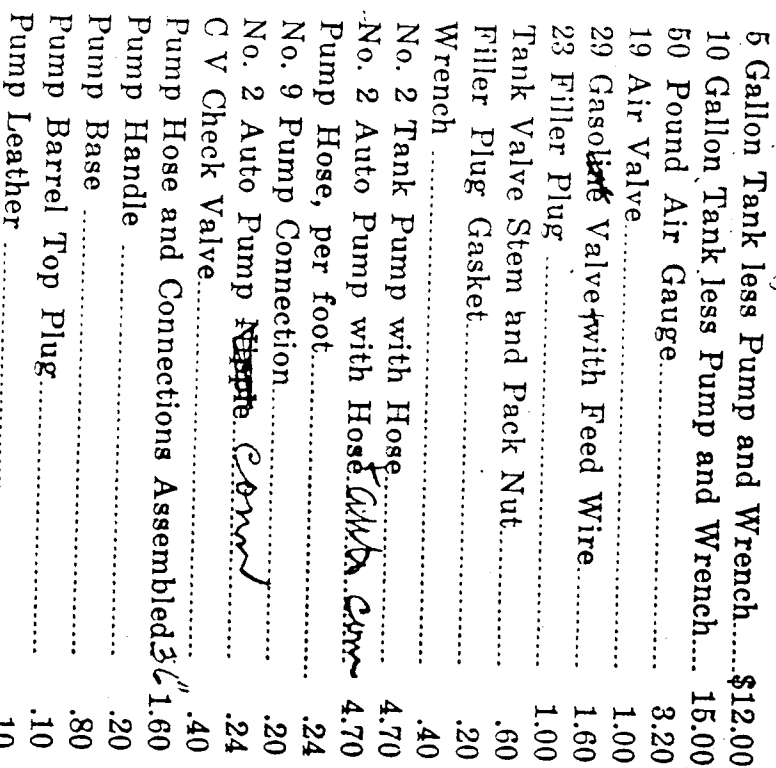 5 Gallon Tank less Pump and Wrench.....$12.00
10 Gallon Tank less Pump and Wrench.... 15.00
50 Pound Air Gauge 3.20
19 Air Valve 1.00
29 Gasoline Valve with Feed Wire 1.60
23 Filler Plug 1.00
Tank Valve Stem and Pack Nut .60
Filler Plug Gasket .20
Wrench .40
No. 2 Tank Pump with Hose 4.70
No. 2 Auto Pump with Hose 4.70
Pump Hose, per foot .24
No. 9 Pump Connection .20
No. 2 Auto Pump Nipple Conn .24
C V Check Valve .40
Pump Hose and Connections Assembled 36" 1.60
Pump Handle .20
Pump Base .80
Pump Barrel Top Plug .10
Pump Leather .10